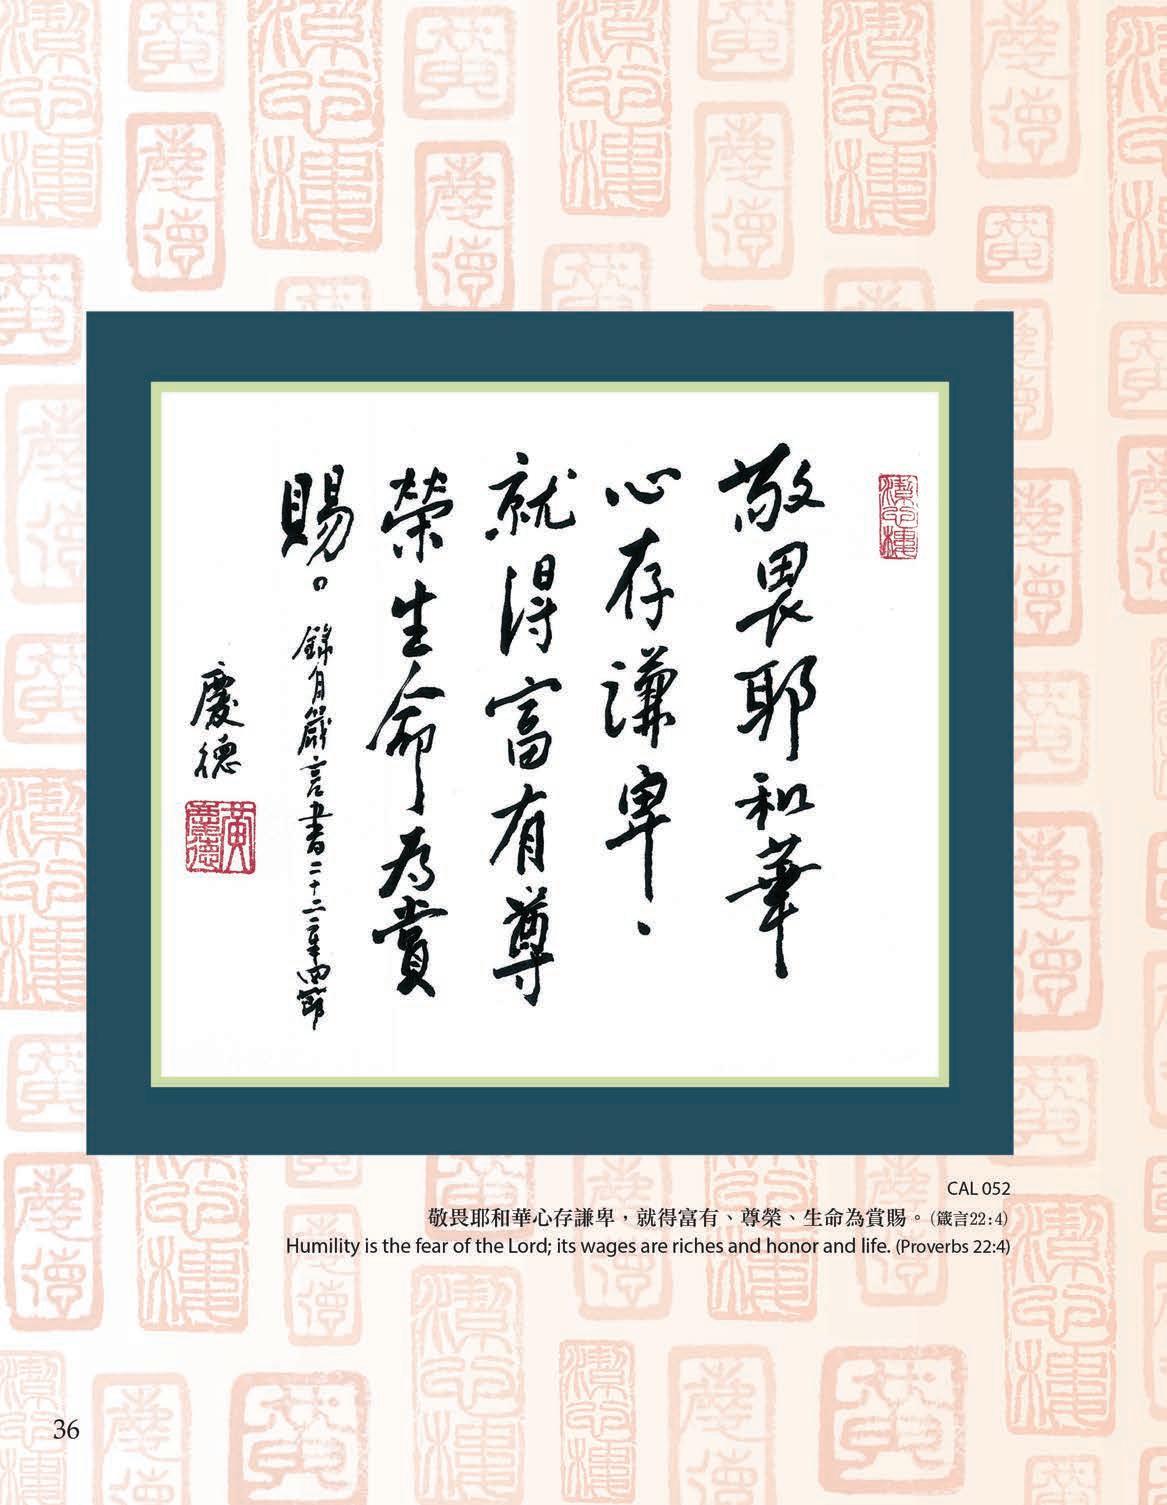 敬畏耶和華
心存謙卑、
就得富有尊
榮生命為賞
賜。
錄自箴言書二十二章四節
慶德
黃慶德
CAL 052
敬畏耶和華心存謙卑，就得富有、尊榮、生命為賞賜。（箴言22:4）
Humility is the fear of the Lord; its wages are riches and honor and life. (Proverbs 22:4)
36